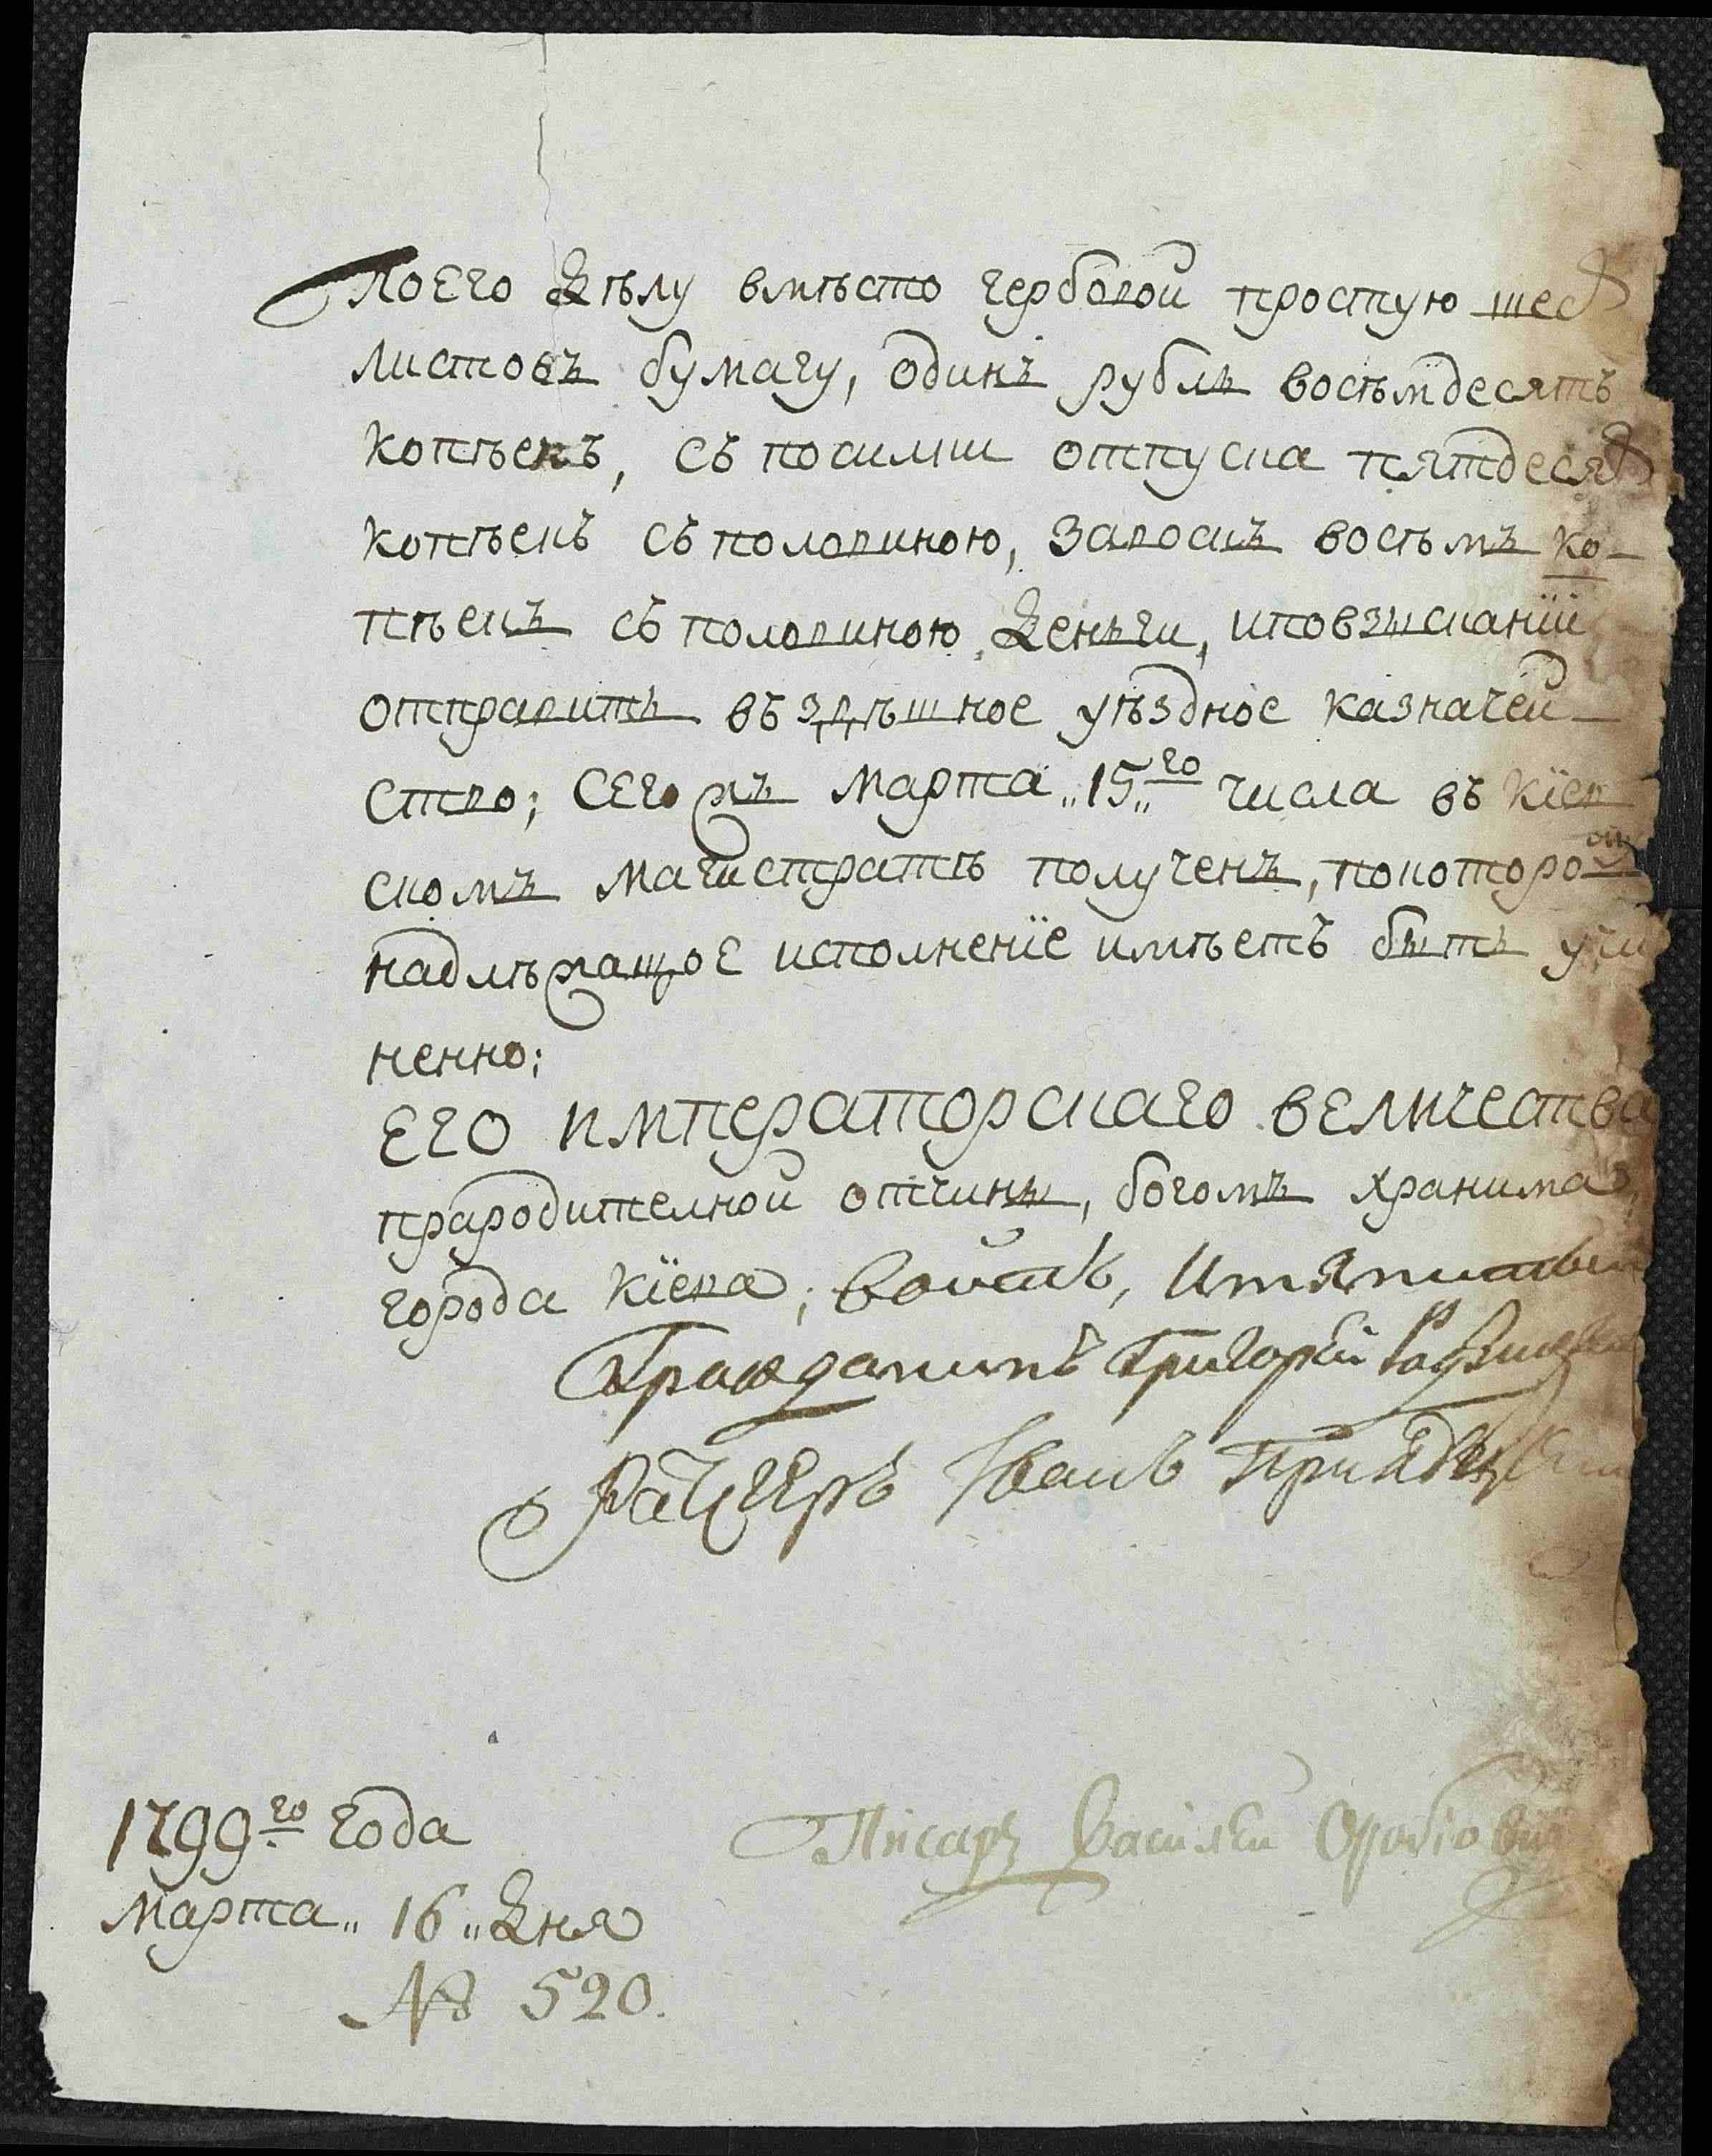 поего дѣлу вмѣсто гербовой простую шес
листовъ бумагу, одинъ рубль восѣмдесятъ
копѣекъ, съ посилки отпуска пятдеся
копѣекъ съ половиною, завоскъ восѣмъ ко-
пѣекъ съ половиною деньги, иповзысканїи
отправить въздѣшное уѣздное казначей-
ство; сегожъ марта „15„го числа въ Кїев
скомъ магистратѣ полученъ, покоторо
надлѣжащое исполненїе имѣетъ быть учи
ненно;
ЕГО императорскаго величества
прародителной отчины, богомъ хранима
города Кїева; войтъ, Имянитый
Гражданинъ Григорей
Ратгеръ Иванъ
Писарь Василей
1799го года
марта „16„ дня
№ 520.